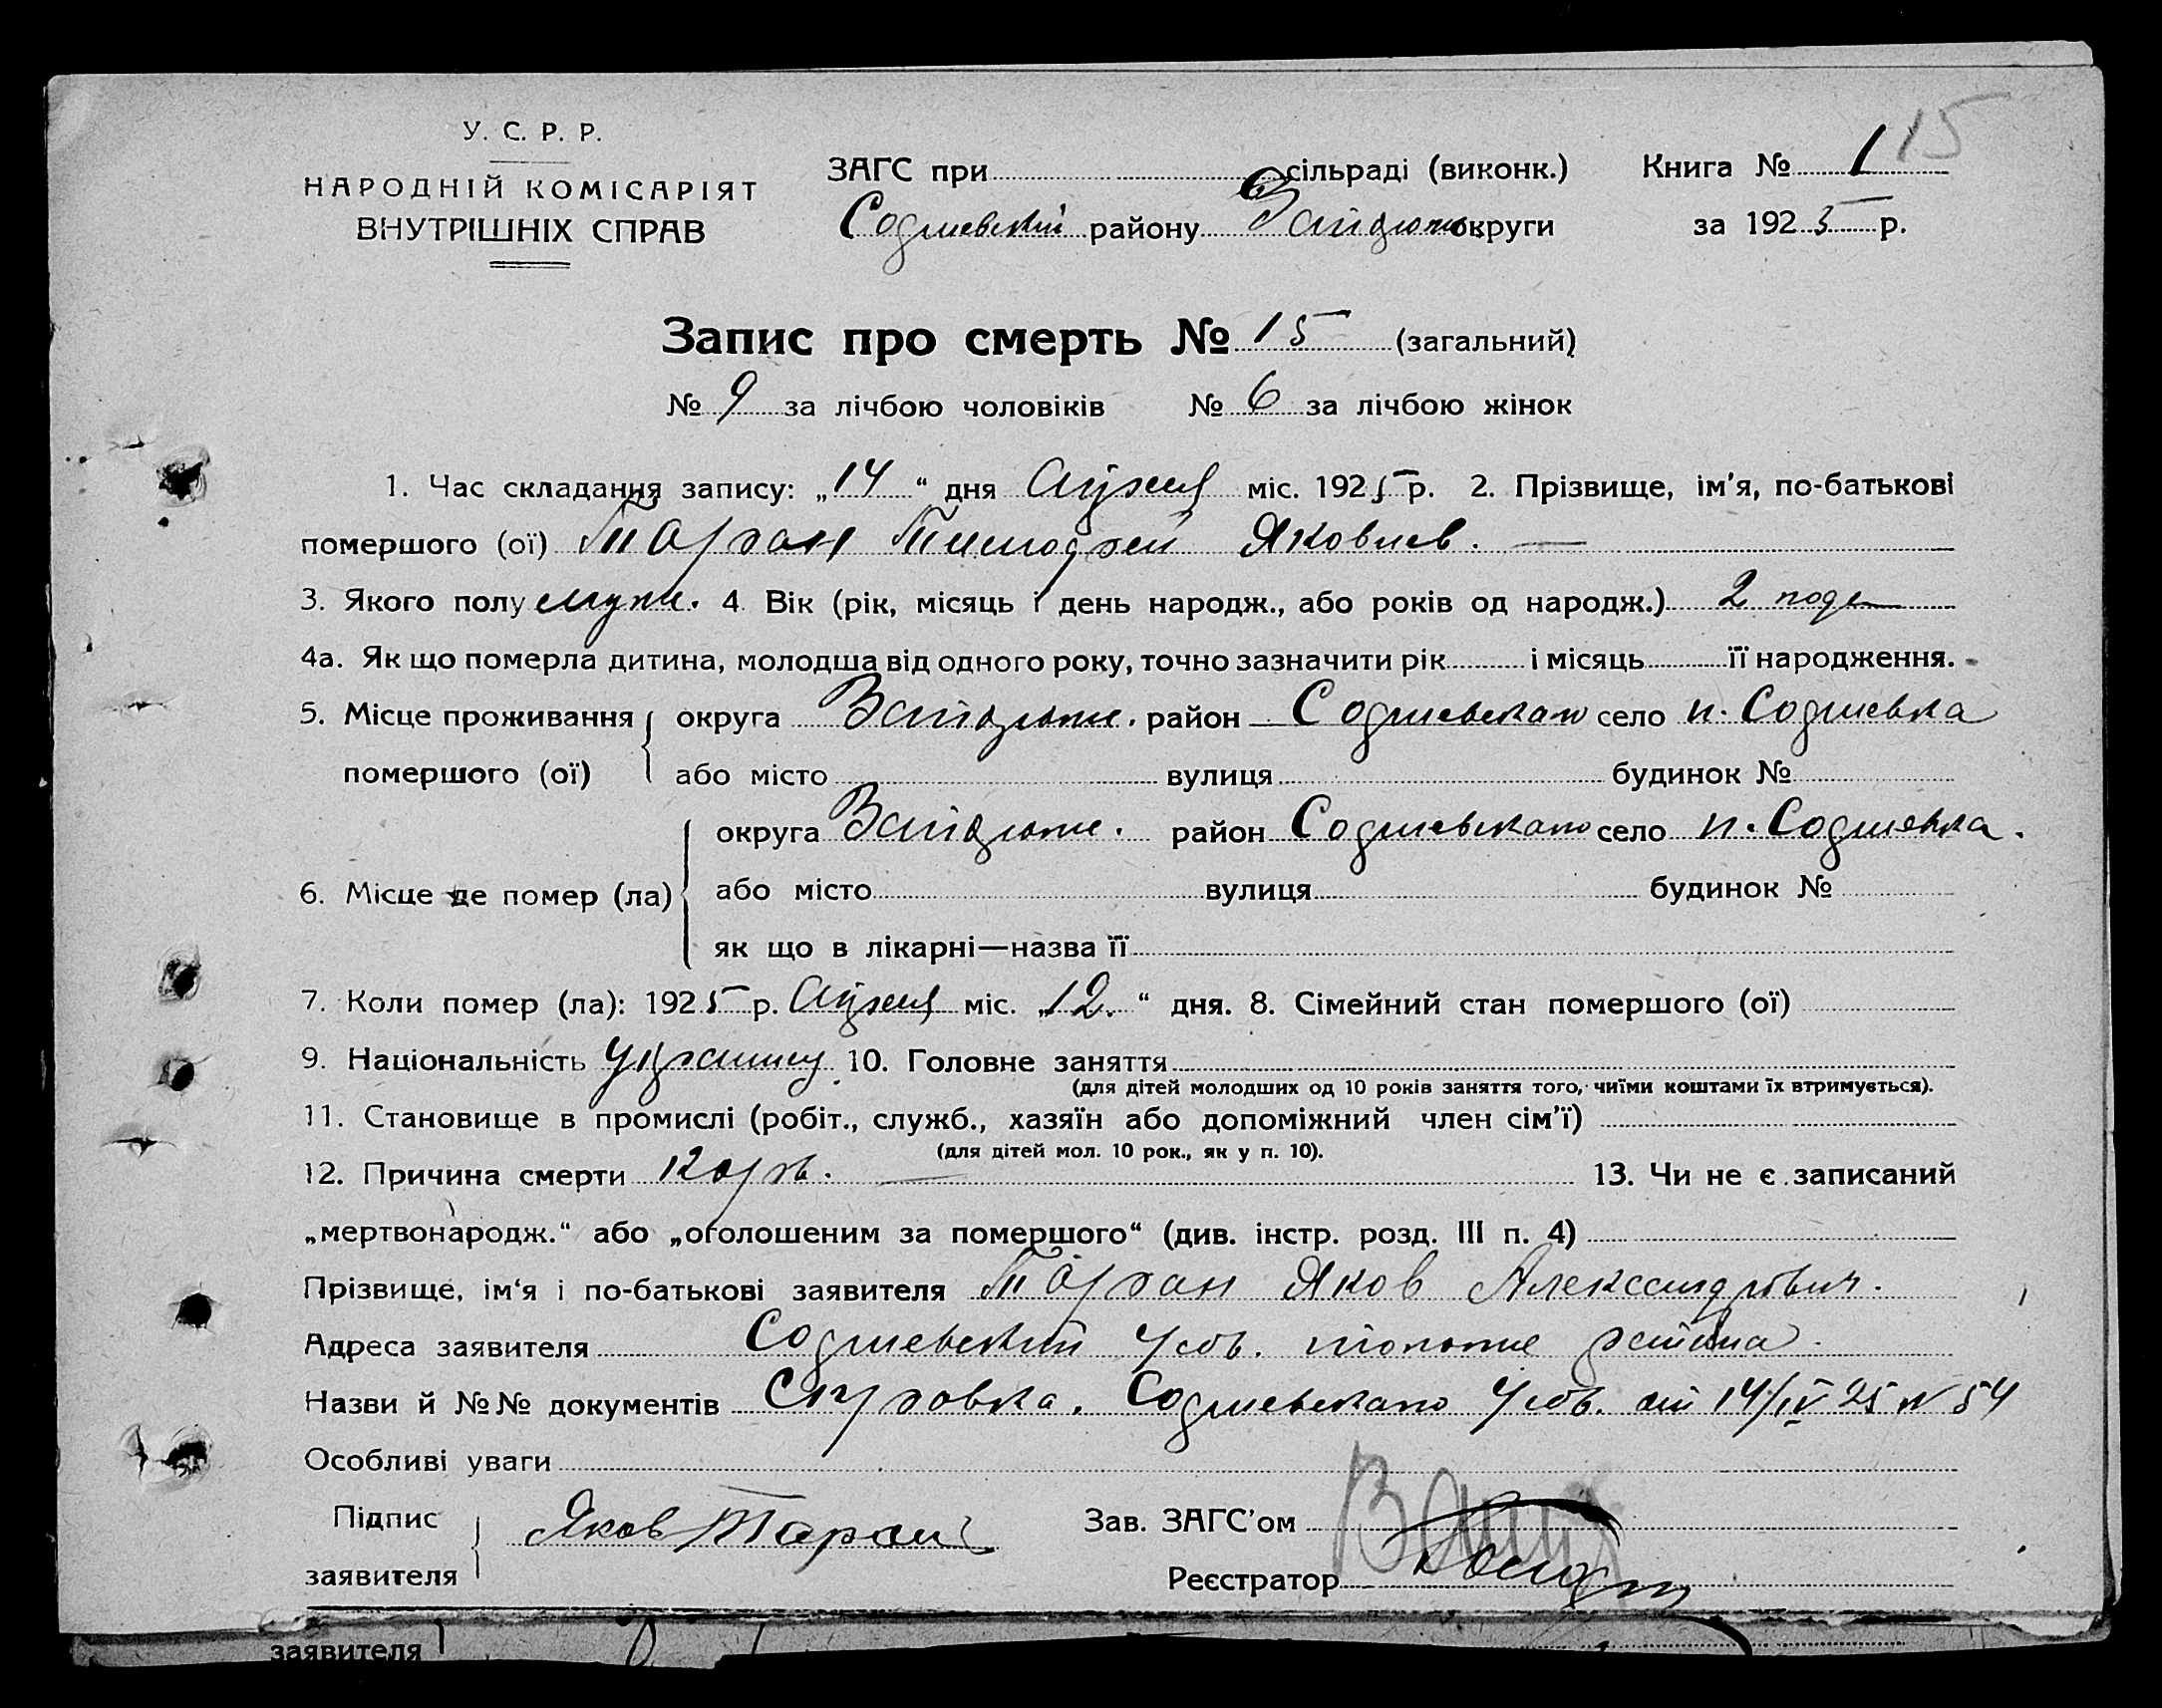 15
У. С. Р. Р.
НАРОДНІЙ КОМІСАРІЯТ
ВНУТРІШНІХ СПРАВ
ЗАГС при сільраді (виконк.) Книга № 1
Софиевский району Запорож округи за 1925 р.
Запис про смерть № 15 (загальний)
№ 9 за лічбою чоловіків № 6 за лічбою жінок
1. Час складання запису: „14“ дня Апреля міс. 1925 р. 2. Прізвище, ім'я, по-батькові
помершого (ої) Таран Тимофей Яковлев.
3. Якого полу муж. 4. Вік (рік, місяць і день народж., або років од народж.) 2 года
4а. Як що померла дитина, молодша від одного року, точно зазначити рік і місяць її народження.
5. Місце проживання округа Запорож. район Софиевского село п. Софиевка
помершого (ої) або місто вулиця будинок №
округа Запорож. район Софиевского село п. Софиевка.
6. Місце де помер (ла) або місто вулиця будинок №
як що в лікарні—назва її
7. Коли помер (ла): 1925 р. Апреля міс. „12“ дня. 8. Сімейний стан помершого (ої)
9. Національність Украинец 10. Головне заняття
(для дітей молодших од 10 років заняття того, чиїми коштами їх втримується).
11. Становище в промислі (робіт., служб., хазяїн або допоміжний член сім'ї)
(для дітей мол. 10 рок., як у п. 10).
12. Причина смерти Корь. 13. Чи не є записаний
„мертвонародж.“ або „оголошеним за помершого“ (див. інстр. розд. III п. 4)
Прізвище, ім'я і по-батькові заявителя Таран Яков Александрович.
Адреса заявителя Софиевский с/сов. того же района.
Назви й №№ документів Справка. Софиевского с/сов. от 14/IV 25 № 54
Особливі уваги
Підпис Яков Таран Зав. ЗАГС'ом
заявителя Реєстратор
заявителя